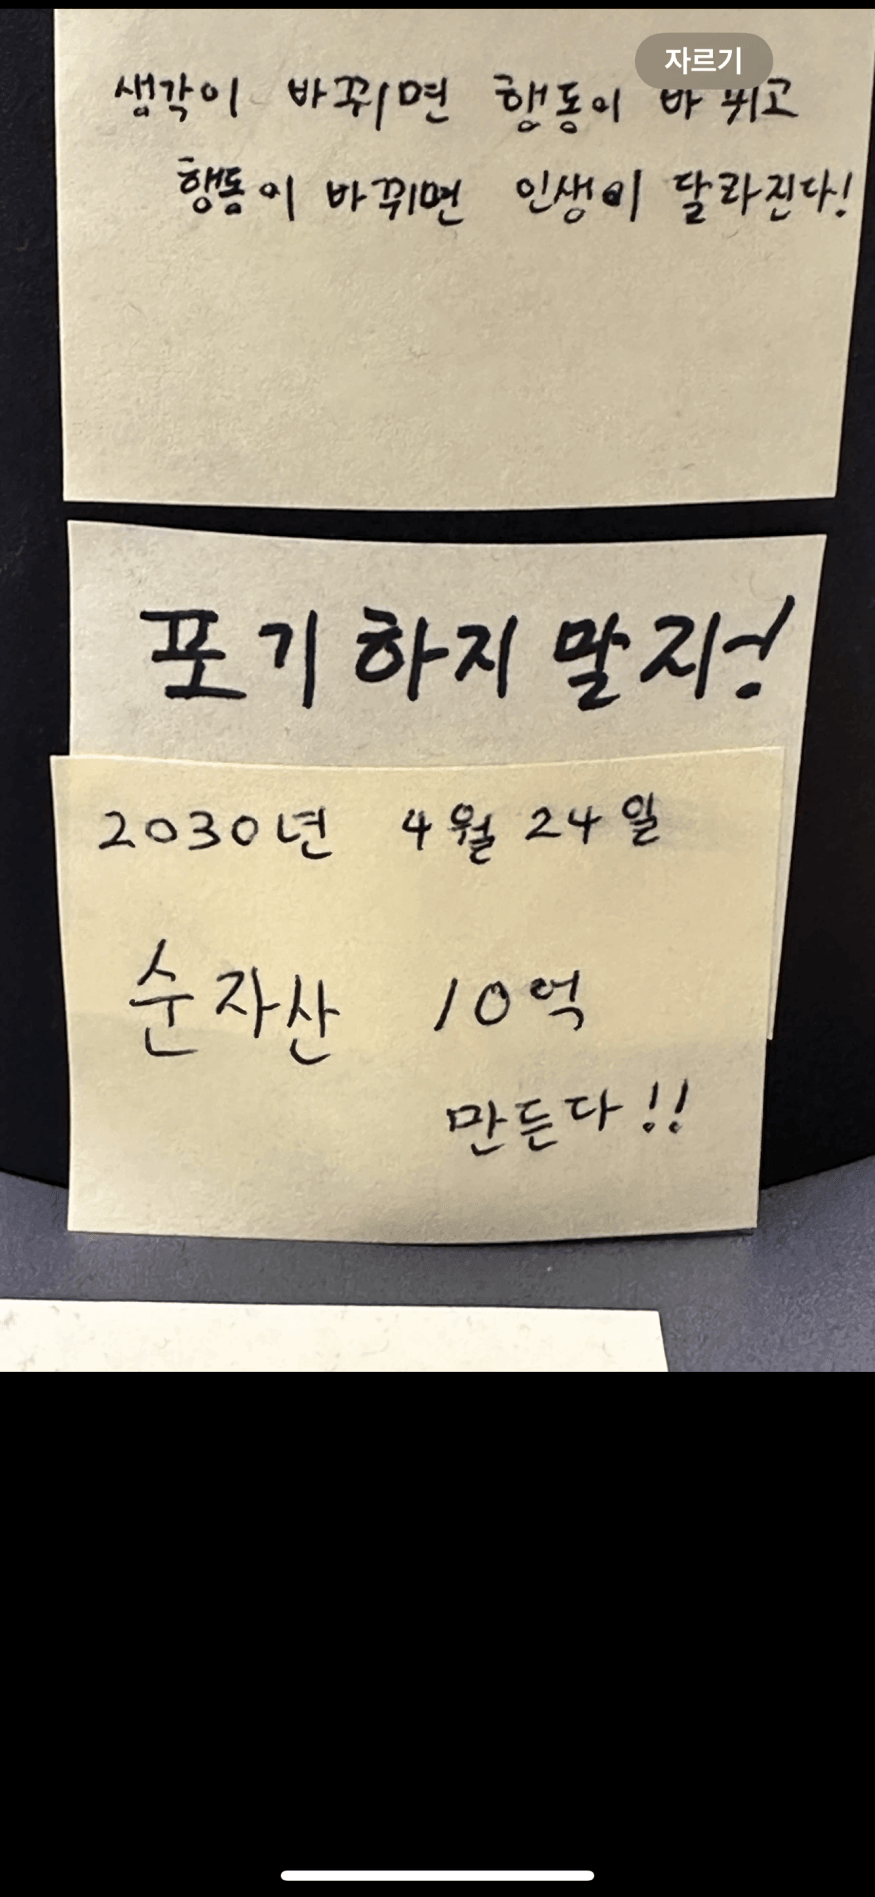 자르기
생각이 바뀌면 행동이 바뀌고
행동이 바뀌면 인생이 달라진다!
포기하지 말자!
2030년 4월 24일
순자산 10억
만든다!!